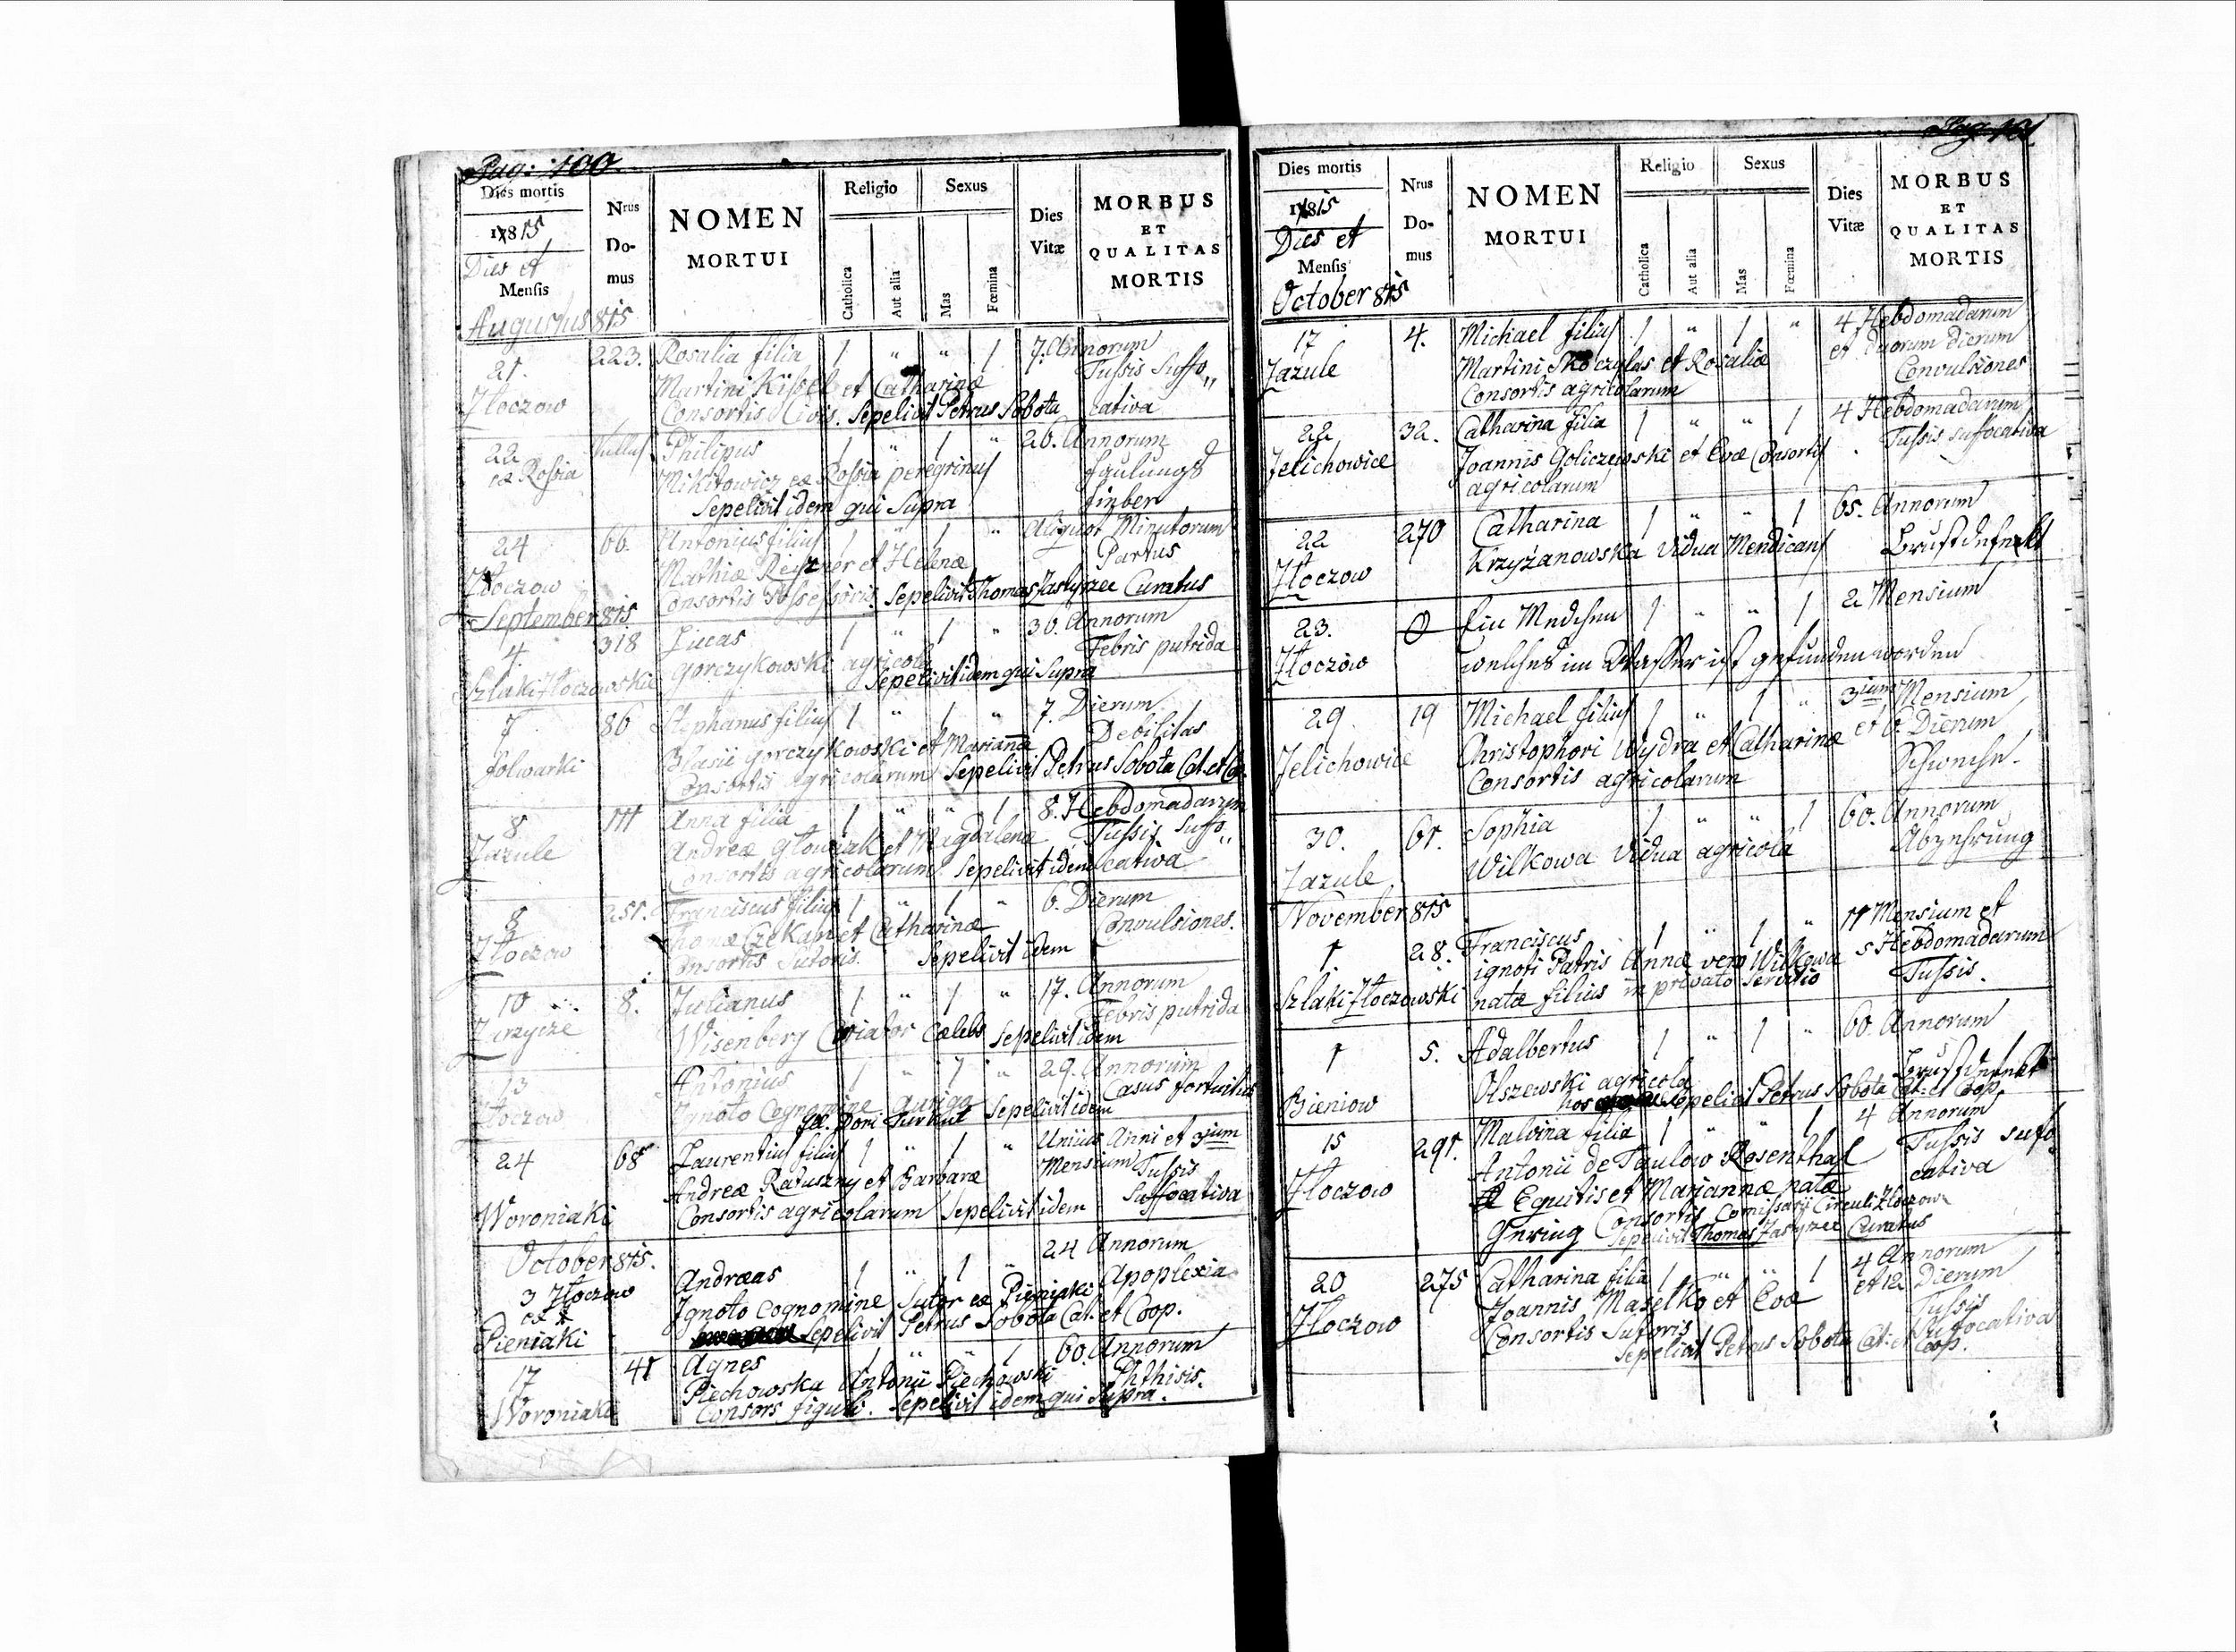 Pag: 100.
Dies mortis
1815
Dies et
Mensis
Augustus 815
Nrus
Do-
mus
NOMEN
MORTUI
Religio
Catholica
Aut alia
Sexus
Mas
Fœmina
Dies
Vitæ
MORBUS
ET
QUALITAS
MORTIS
21. 223. Rosalia filia 1 " " 1 7. Annorum
Martini Kissel et Catharinæ Tussis Suffo„
Złoczow Consortis Civis. Sepelivit Petrus Sobota cativa
22 Nullus Philipus 1 " 1 " 26. Annorum
ex Rossia Mikitowicz ex Rossia peregrinus Faulungs
Sepelivit idem qui Supra fieber
24 66. Antonius filius 1 " 1 " Aliquot Minutorum
Mathiæ Reisner et Helenæ Partus
Złoczow Consortis Possessoris. Sepelivit Thomas Jastrzec Curatus
September 815
4. 318 Lucas 1 " 1 " 30. Annorum
Gorczykowski agricola Febris putrida
Szlaki Złoczowskie Sepelivit idem qui Supra
7 86 Stephanus filius 1 " 1 " 7. Dierum
Blasii Gorczykowski et Mariannæ Debilitas
Folwarki Consortis agricolarum Sepelivit Petrus Sobota Cat. et Cop.
8 111 Anna filia 1 " " 1 8. Hebdomadarum
Zazule Andreæ Głowiak et Magdalenæ Tussis Suffo„
Consortis agricolarum Sepelivit idem cativa
8 251. Franciscus filius 1 " 1 " 6. Dierum
Thomæ Czekan et Catharinæ Convulsiones.
Złoczow Consortis Sutoris. Sepelivit idem
10 8. Julianus 1 " 1 " 17. Annorum
Zarzycze Febris putrida
Wisenberg Coriator Cælebs Sepelivit idem
13 Antonius 1 " 1 " 29. Annorum
Złoczow Ignoto Cognomine auriga Casus fortuitus
Sepelivit idem
24 68 Laurentius filius 1 " 1 " Unius Anni et 3ium
Andreæ Ratuszny et Barbaræ Mensium Tussis
Woroniaki Consortis agricolarum Sepelivit idem Suffocativa
October 815.
3 Złoczow Andræas 1 " 1 " 24 Annorum
ex Ignoto Cognomine Sutor ex Pieniaki Apoplexia
Pieniaki Sepelivit Petrus Sobota Cat. et Coop.
17 41 Agnes 1 " " 1 60. Annorum
Piechowska Antonii Piechowski Phthisis.
Woroniaki Consors figuli. Sepelivit idem qui Supra.
Pag. 101
Dies mortis
1815
Dies et
Mensis
October 815
Nrus
Do-
mus
NOMEN
MORTUI
Religio
Catholica
Aut alia
Sexus
Mas
Fœmina
Dies
Vitæ
MORBUS
ET
QUALITAS
MORTIS
17 4. Michael filius 1 " 1 " 4 Hebdomadarum
Zazule Martini Skoczylas et Rosaliæ et duorum Dierum
Consortis agricolarum Convulsiones
22 32. Catharina filia 1 " " 1 4 Hebdomadarum
Jelichowice Joannis Goliczewski et Evæ Consortis Tussis suffocativa
agricolarum
22 270 Catharina 1 " " 1 65. Annorum
Złoczow Krzyżanowska Vidua Mendicans Brustdefekt
23. 0 Ein Mädchen 1 " " 1 2 Mensium
Złoczow welches im Wasser ist gefunden worden
29. 19 Michael filius 1 " 1 " 3ium Mensium
Jelichowice Christophori Wydra et Catharinæ et 6. Dierum
Consortis agricolarum Schwäche.
30. 61. Sophia 1 " " 1 60. Annorum
Zazule Wilkowa Vidua agricola Abzehrung
November 815
1. 28. Franciscus 1 " 1 " 11 Mensium et
ignoti Patris Annæ vero Wilkowa 5 Hebdomadarum
Szlaki Złoczowski natæ filius in privato Servitio Tussis.
1 5. Adalbertus 1 " 1 " 60. Annorum
Bieniow Olszewski agricola Brustdefekt
hos Sepelivit Petrus Sobota Cat: et Coop.
15 291. Malvina filia 1 " " 1 4 Annorum
Antonii de Paulow Rosenthal Tussis sufo
Złoczow Equitis et Mariannæ natæ cativa
Gering Consortis Comissarij Circuli Złoczow
Sepelivit Thomas Jastrzec Curatus
20 275 Catharina filia 1 " " 1 4 Annorum
Joannis Masełko et Evæ et 12 Dierum
Złoczow Consortis Sutoris Tussis
Sufocativa
Sepelivit Petrus Sobota Cat: et Coop.